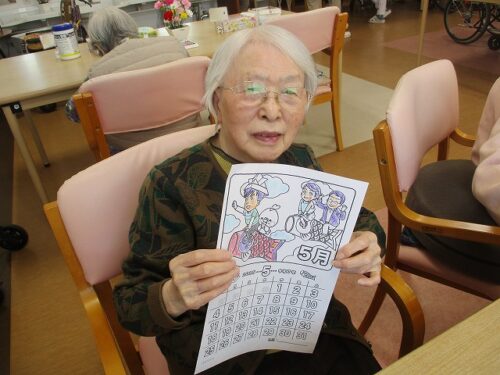 5月
5
1 2 3
4 5 6 7 8 9 10
11 12 13 14 15 16 17
18 19 20 21 22 23 24
25 26 27 28 29 30 31